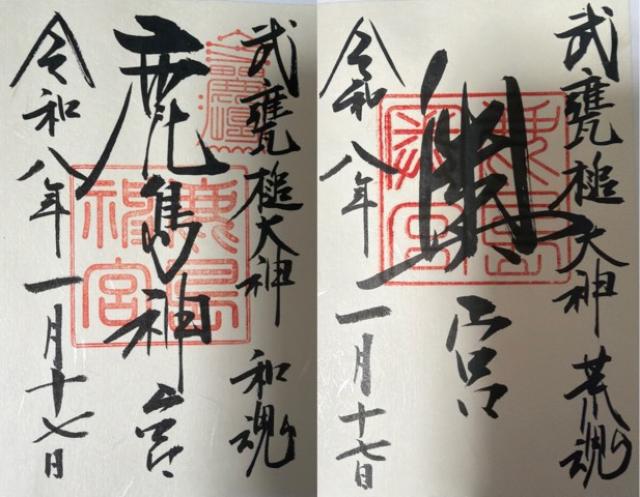 武甕槌大神 和魂
鹿島神宮
鹿島神宮
令和八年一月十七日
武甕槌大神 荒魂
奥宮
令和八年一月十七日